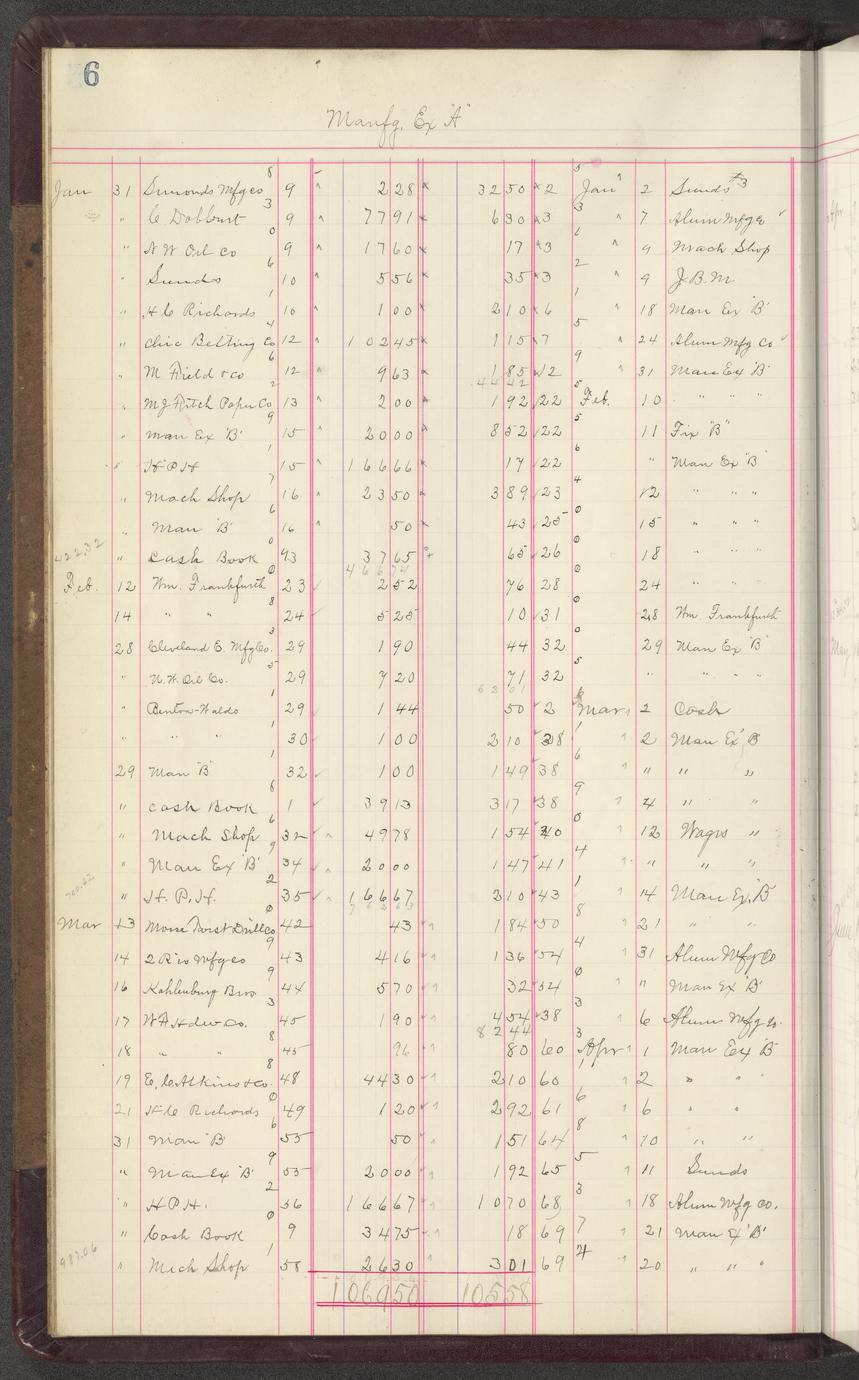 6
Manfg. Ex "A"
Jan 31 Simonds Mfg Co 9 2 28 32 50 2 Jan 2 Sunds #3
" C Dobburt 9 77 91 6 30 3 " 7 Alum Mfg Co
" N W Oil Co 9 17 60 17 3 " 9 Mach Shop
" Sunds 10 5 56 35 3 " 9 J. B. M.
" H C Richards 10 1 00 2 10 6 " 18 Man Ex "B"
" Chic Belting Co 12 102 45 1 15 7 " 24 Alum Mfg Co
" M Field & Co 12 9 63 1 85 12 " 31 Man Ex "B"
44 42
" M J Fitch Paper Co 13 2 00 1 92 22 Feb. 10 " " "
" Man Ex "B" 15 20 00 8 52 22 11 Fix "B"
" H P H 15 166 66 17 22 " Man Ex "B"
" Mach Shop 16 23 50 3 89 23 12 " " "
" Man "B" 16 50 43 25 15 " " "
422.32 " Cash Book 93 37 65 65 26 18 " " "
466 74
Feb. 12 Wm. Frankfurth 23 2 52 76 28 24 " " "
14 " " 24 5 25 10 31 28 Wm. Frankfurth
28 Cleveland E. Mfg Co. 29 1 90 44 32 29 Man Ex "B"
" N. W. Oil Co. 29 7 20 71 32 " " " "
62 01
" Benton-Waldo 29 1 44 50 2 Mar 2 Cash
" " " 30 1 00 2 10 38 " 2 Man Ex "B"
29 Man "B" 32 1 00 1 49 38 " " " "
" Cash Book 1 39 13 3 17 38 " 4 " "
" Mach Shop 32 49 78 1 54 40 " 12 Wages "
" Man Ex "B" 34 20 00 1 47 41 " " " "
" H. P. H. 35 166 67 2 10 43 " 14 Man Ex "B"
Mar 13 Morse Twist Drill Co 42 43 1 84 50 " 21 " "
14 2 Riv Mfg Co 43 4 16 1 36 54 " 31 Alum Mfg Co
16 Kahlenburg Bros 44 5 70 32 54 " " Man Ex "B"
17 W A Hdw Co. 45 1 90 4 54 38 " 6 Alum Mfg Co.
82 44
18 " " 45 96 80 60 Apr 1 Man Ex "B"
19 E. C. Atkins & Co. 48 44 30 2 10 60 " 2 " " "
21 H C Richards 49 1 20 2 92 61 " 6 " "
31 Man "B" 55 50 1 51 64 " 10 " "
" Man Ex "B" 55 20 00 1 92 65 " 11 Sunds
" H P H. 56 166 67 10 70 68 " 18 Alum Mfg Co.
" Cash Book 9 34 75 18 69 " 21 Man Ex "B"
987.06 " Mich Shop 58 26 30 3 01 69 " 20 " " "
1069 50 105 58